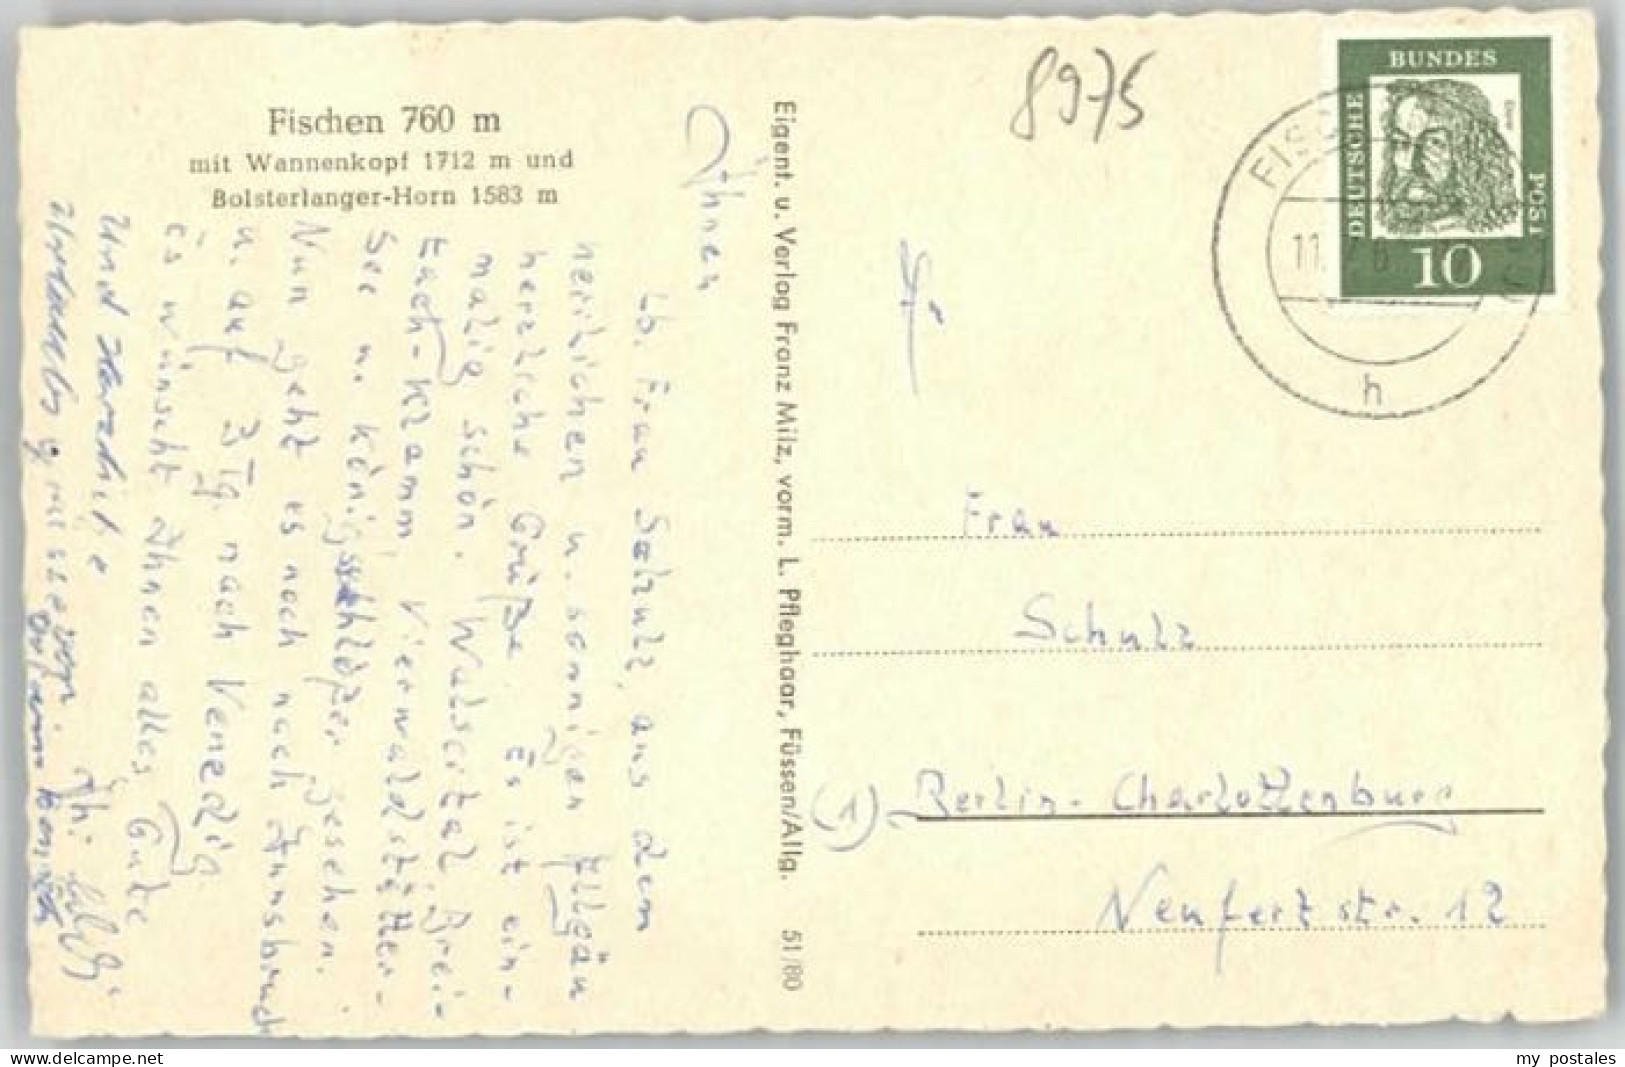 Fischen 760 m
mit Wannenkopf 1712 m und
Bolsterlanger-Horn 1583 m
Ihnen
lb. Frau Schulz, aus dem
herrlichen u. sonnigen Allgäu
herzliche Grüße. Es ist ein-
malig schön. Walsertal, Brei-
tach-Klamm, Vierwaldstätter-
See u. Königsschlößer gesehen.
Nun geht es noch nach Innsbruck
u. auf 3 Tg. nach Venedig.
Es wünscht Ihnen alles Gute
Ihr
Und herzliche
Urlaubsgrüsse von
Eigent. u. Verlag Franz Milz, vorm. L. Pfleghaar, Füssen/Allg. 51/80
8975
BUNDES
DEUTSCHE
POST
10
FISC
11.
h
Frau
Schulz
(1) Berlin-Charlottenburg
Neufertstr. 12
my postales